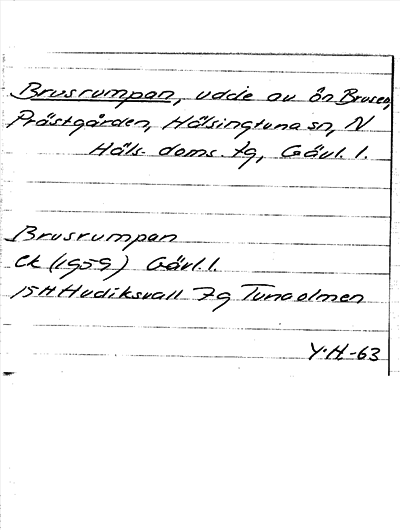 Brusrumpan, udde av ön Brusen,
Prästgården, Hälsingtuna sn, N
Häls. doms. tg, Gävl. l.
Brusrumpan
Ek (1959) Gävl. l.
15H Hudiksvall 7g Tunaolmen
Y.H.-63